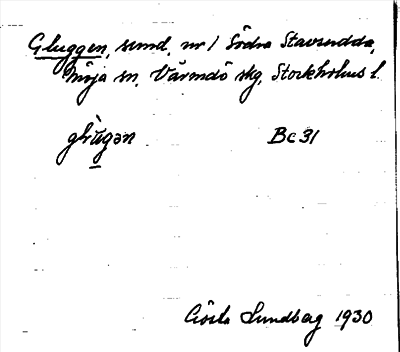 Gluggen, sund, nr 1 Södra Stavsudda,
Möja sn, Värmdö skg, Stockholms l.
glùgən Bc 31
Gösta Lundberg 1930